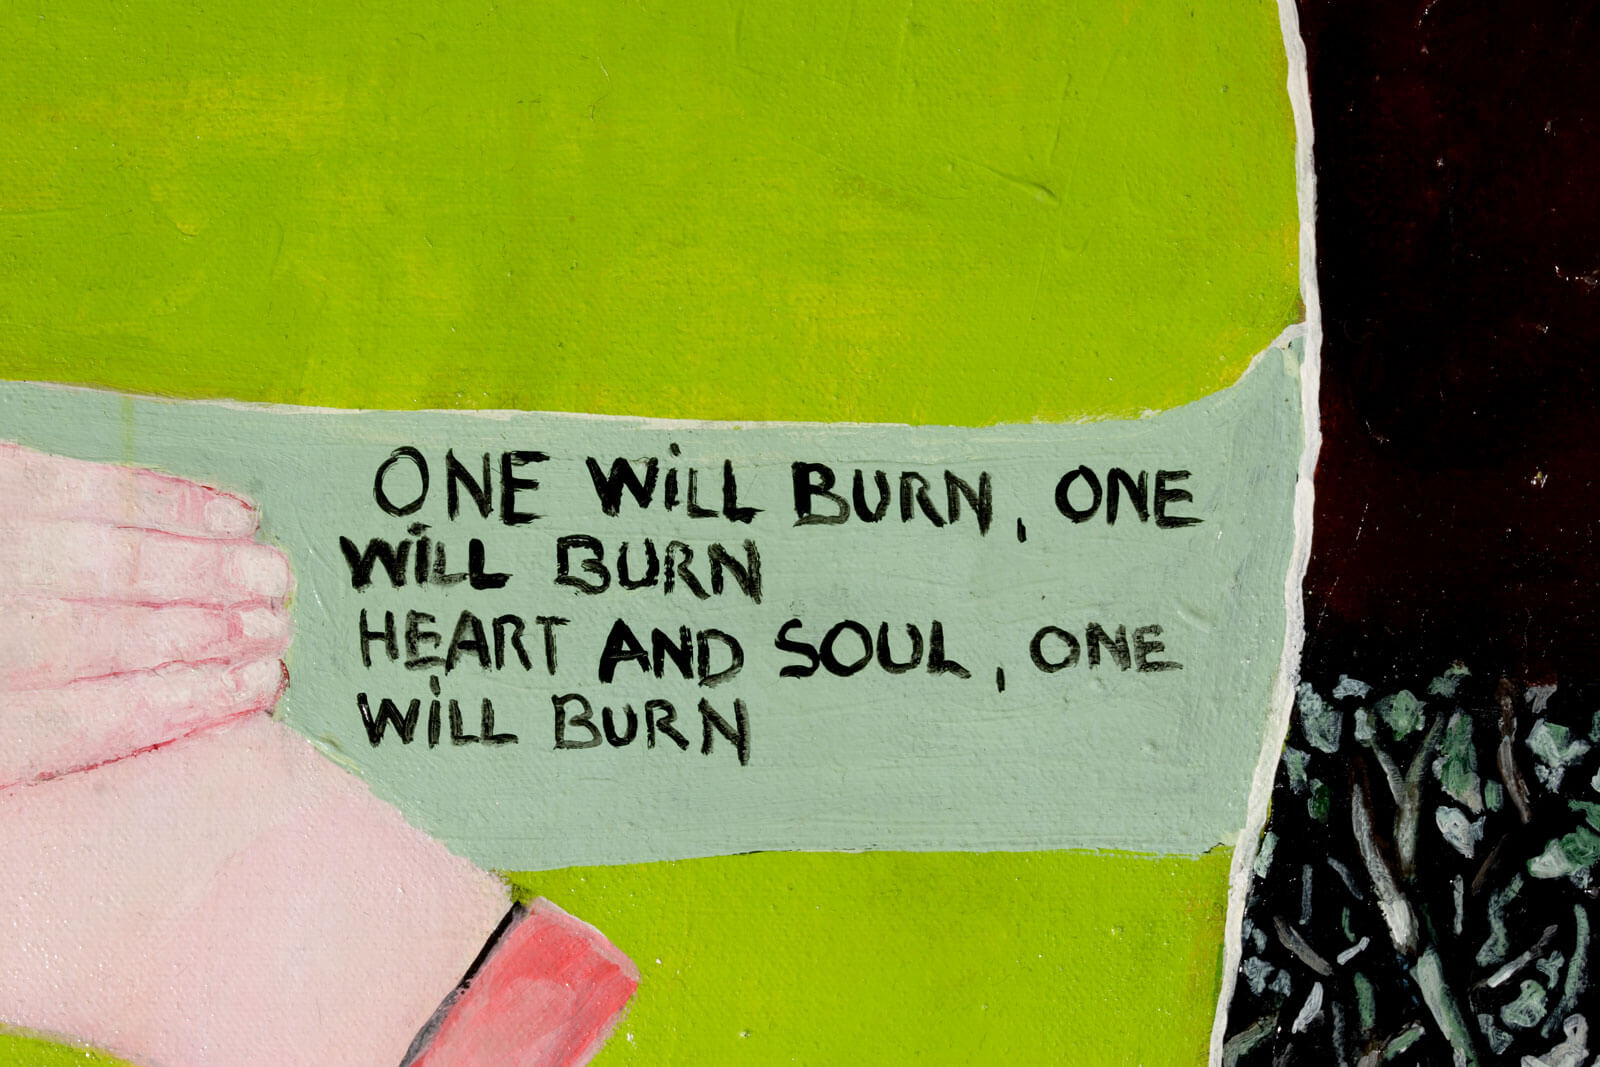 ONE WiLL BURN, ONE
WiLL BURN
HEART AND SOUL, ONE
WiLL BURN